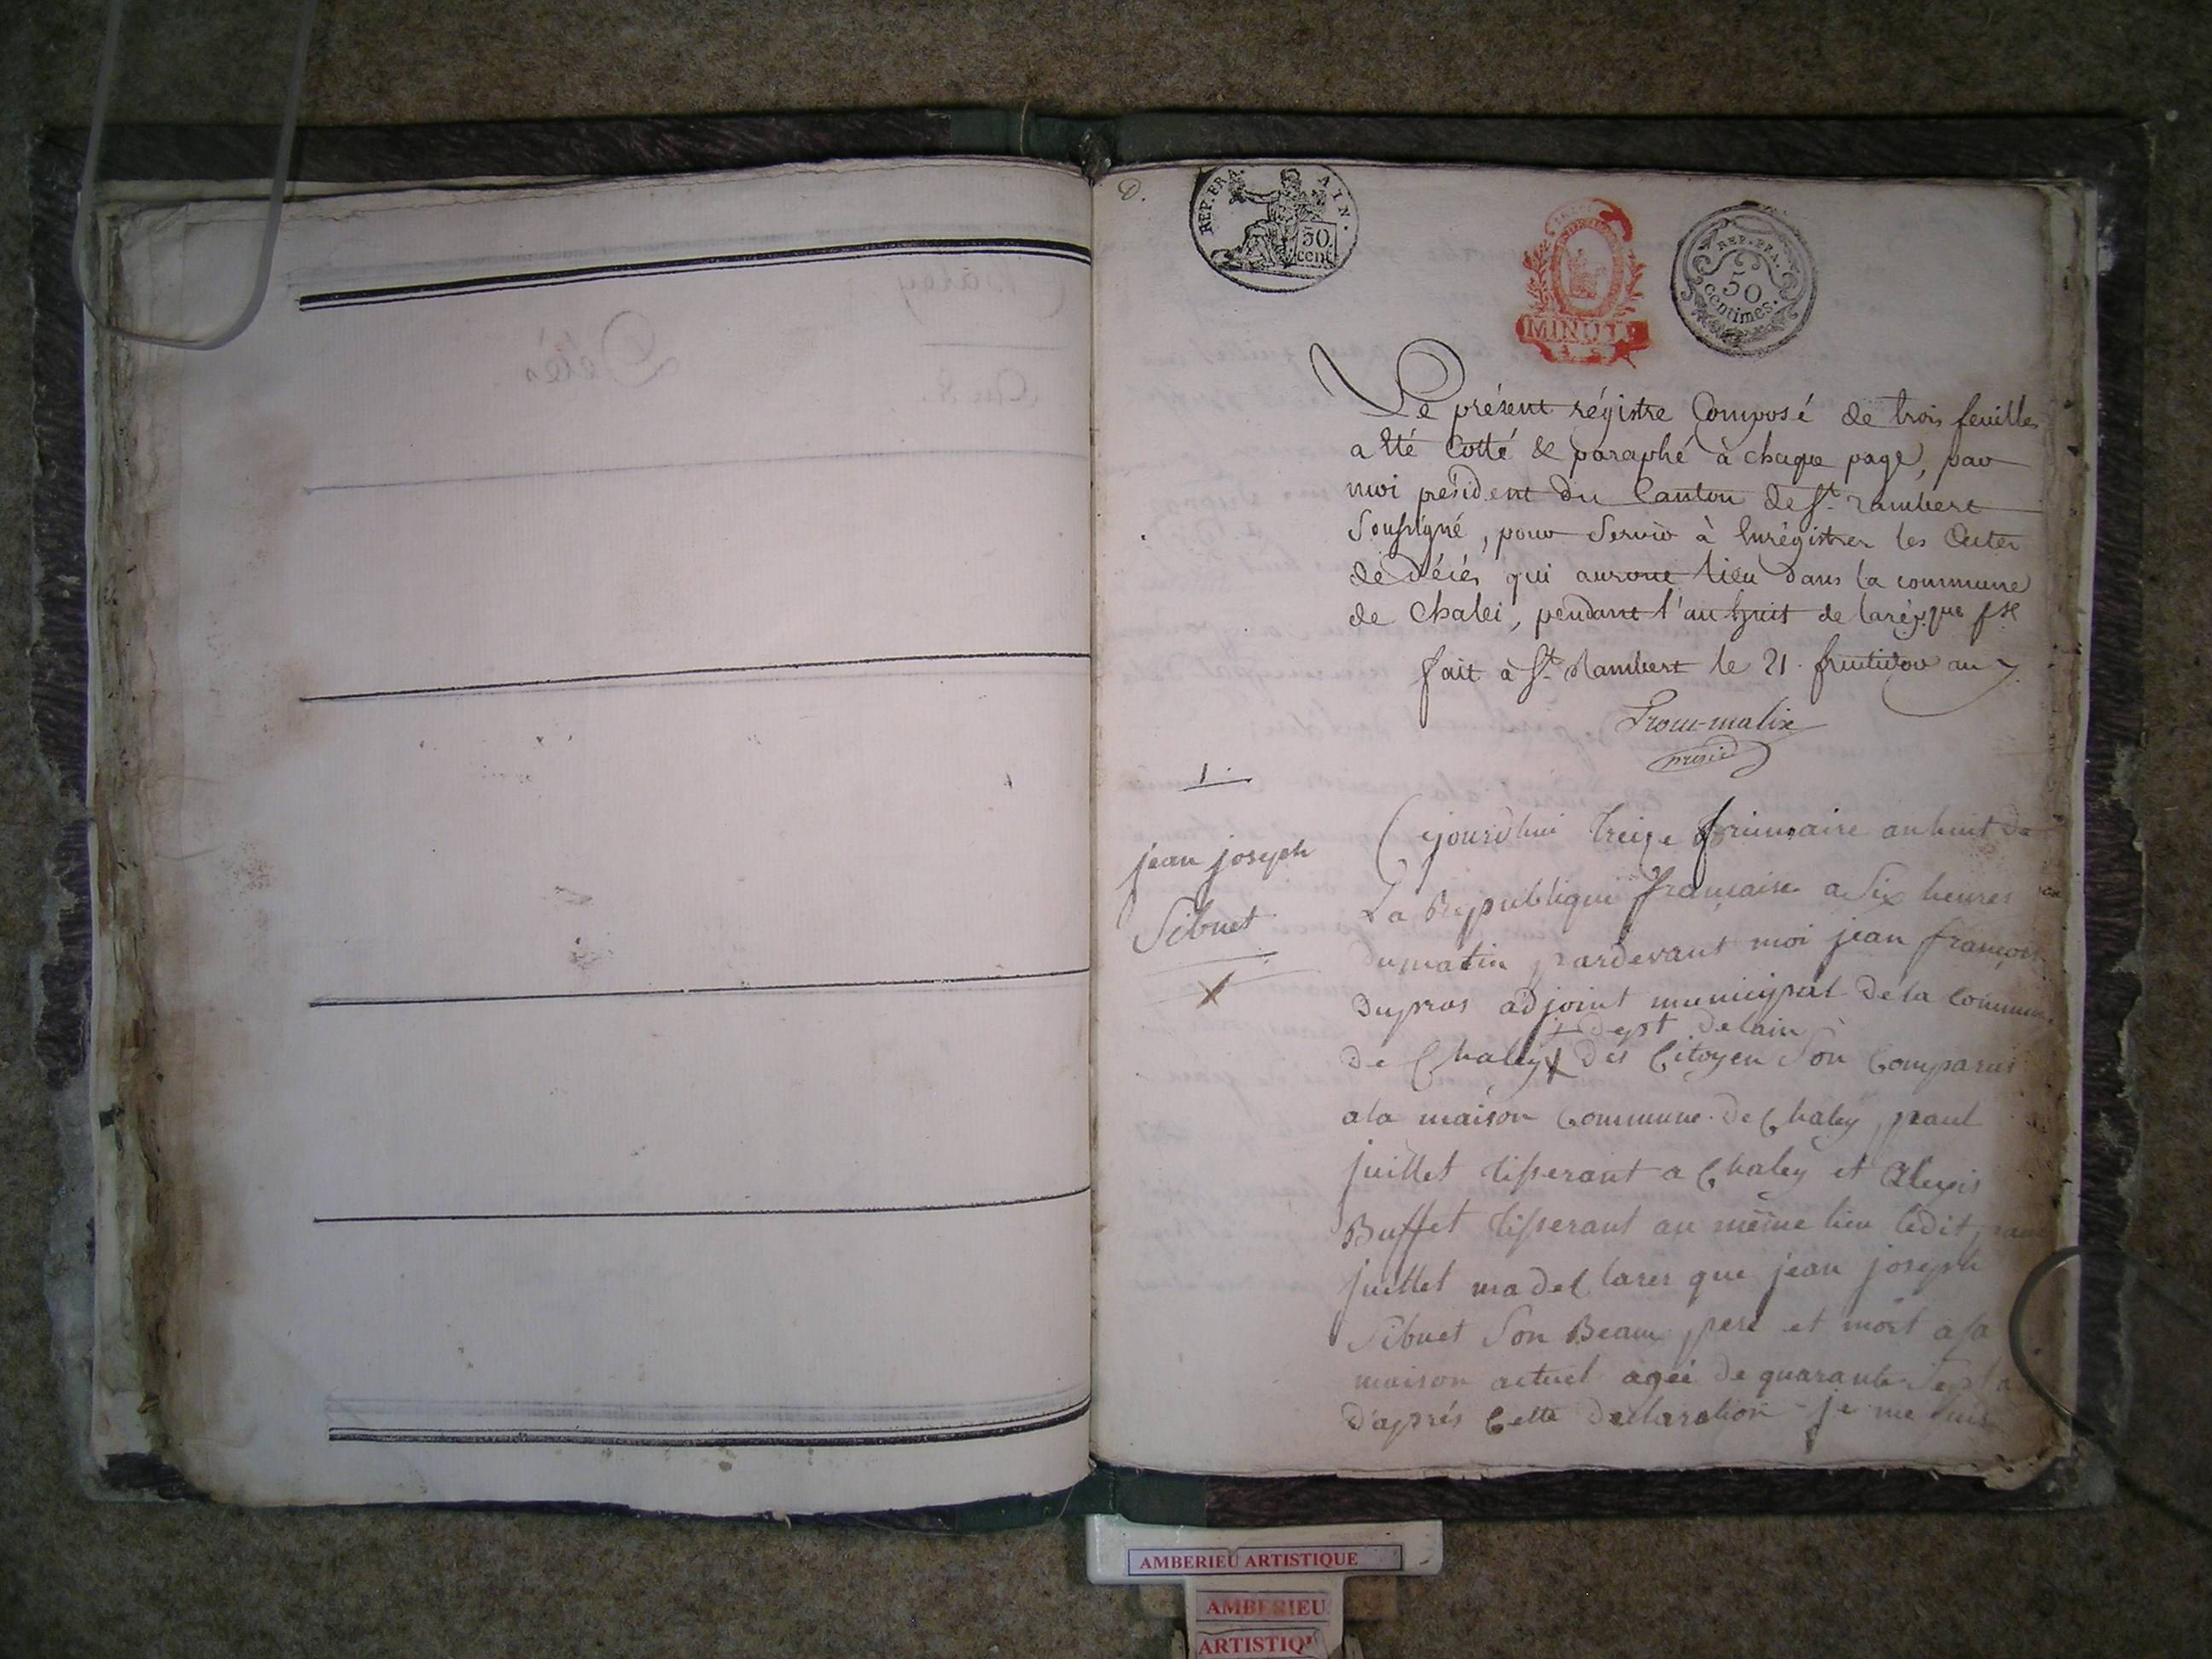 D.
REP. FRA. AIN.
50.
cent.
MINUTE
REP. FRA.
50
centimes.
Le présent régistre Composé de trois feuilles
a été Cotté & paraphé à chaque page, par
moi président du Canton de St. rambert
Soussigné, pour Servir à Enrégistrer les Actes
de décés qui auront lieu dans la commune
de Chalei, pendant l'an huit de la rép.que fse
fait à St. Rambert le 21. fructidor an 7.
présid
1.
jean joseph
Sibuet
Cejourdhui treize frimaire an huit de
La Republique française a Six heures
du matin pardevant moi jean françois
Dupras adjoint municipal de la Commune
+ dept delain
de Chaley + des Citoyen Son Comparus
a la maison Commune de Chaley paul
juillet tisserant a Chaley et Alexis
Buffet tisserant au même lieu ledit paul
juillet ma declarer que jean joseph
Sibuet Son Beau pere et mort a sa
maison actuel ageé de quarante Sept
d'aprés Cette declaration je me suis
AMBERIEU ARTISTIQUE
AMBERIEU
ARTISTIQU